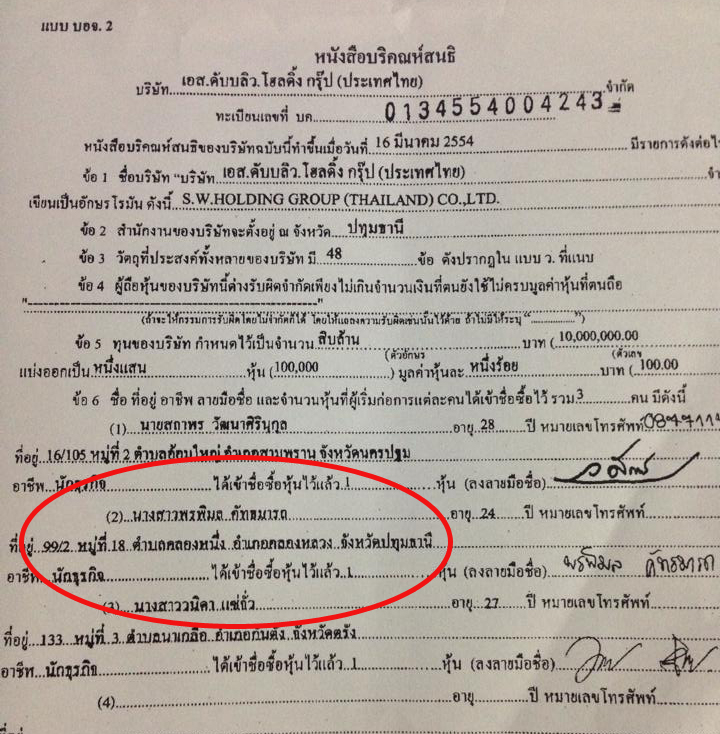 แบบ บอจ. 2
หนังสือบริคณห์สนธิ
บริษัท...เอส.ดับบลิว.โฮลดิ้ง กรุ๊ป (ประเทศไทย)...จำกัด
ทะเบียนเลขที่ บค. 0134554004243
หนังสือบริคณห์สนธิของบริษัทฉบับนี้ทำขึ้นเมื่อวันที่ 16 มีนาคม 2554 มีรายการดังต่อไ
ข้อ 1 ชื่อบริษัท "บริษัท...เอส.ดับบลิว.โฮลดิ้ง กรุ๊ป (ประเทศไทย)
เขียนเป็นอักษรโรมัน ดังนี้...S.W.HOLDING GROUP (THAILAND) CO.,LTD.
ข้อ 2 สำนักงานของบริษัทจะตั้งอยู่ ณ จังหวัด...ปทุมธานี
ข้อ 3 วัตถุที่ประสงค์ทั้งหลายของบริษัท มี...48...ข้อ ดังปรากฏใน แบบ ว. ที่แนบ
ข้อ 4 ผู้ถือหุ้นของบริษัทนี้ต่างรับผิดจำกัดเพียงไม่เกินจำนวนเงินที่ตนยังใช้ไม่ครบมูลค่าหุ้นที่ตนถือ
"--------------------"
(ถ้าจะให้กรรมการรับผิดโดยไม่จำกัดก็ได้ โดยให้แถลงความรับผิดเช่นนั้นไว้ด้วย ถ้าไม่มีให้ระบุ "...............")
ข้อ 5 ทุนของบริษัท กำหนดไว้เป็นจำนวน...สิบล้าน...บาท (...10,000,000.00
(ตัวอักษร) (ตัวเลข
แบ่งออกเป็น...หนึ่งแสน...หุ้น (100,000...) มูลค่าหุ้นละ...หนึ่งร้อย...บาท (...100.00
ข้อ 6 ชื่อ ที่อยู่ อาชีพ ลายมือชื่อ และจำนวนหุ้นที่ผู้เริ่มก่อการแต่ละคนได้เข้าชื่อซื้อไว้ รวม...3...คน มีดังนี้
(1)...นายสถาพร วัฒนาศิรินุกุล...อายุ...28...ปี หมายเลขโทรศัพท์
ที่อยู่...16/105 หมู่ที่ 2 ตำบลอ้อมใหญ่ อำเภอสามพราน จังหวัดนครปฐม
อาชีพ...นักธุรกิจ...ได้เข้าชื่อซื้อหุ้นไว้แล้ว...1...หุ้น (ลงลายมือชื่อ)
(2)...นางสาวพรพิมล คัทธมารถ...อายุ...24...ปี หมายเลขโทรศัพท์
ที่อยู่...99/2 หมู่ที่ 18 ตำบลคลองหนึ่ง อำเภอคลองหลวง จังหวัดปทุมธานี
อาชีพ...นักธุรกิจ...ได้เข้าชื่อซื้อหุ้นไว้แล้ว...1...หุ้น (ลงลายมือชื่อ) พรพิมล คัทธมารถ
(3)...นางสาววนิดา แซ่ถั่ว...อายุ...27...ปี หมายเลขโทรศัพท์
ที่อยู่...133 หมู่ที่ 3 ตำบลนาเกลือ อำเภอกันตัง จังหวัดตรัง
อาชีพ...นักธุรกิจ...ได้เข้าชื่อซื้อหุ้นไว้แล้ว...1...หุ้น (ลงลายมือชื่อ)
(4)...อายุ...ปี หมายเลขโทรศัพท์